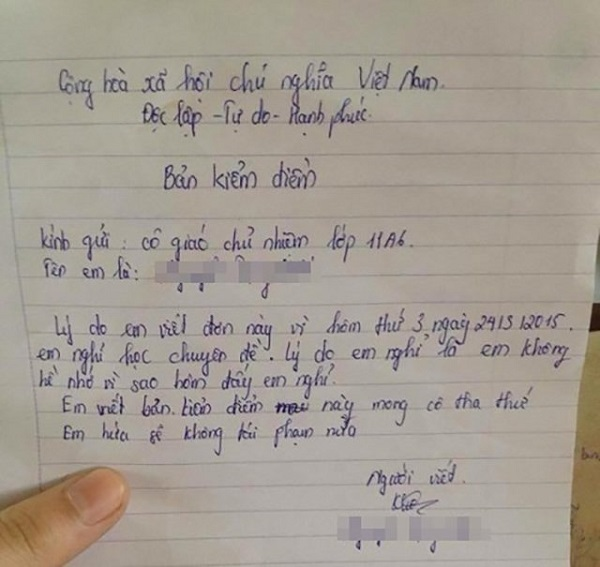 Cộng hoà xã hội chủ nghĩa Việt Nam.
Độc lập - Tự do - Hạnh phúc.
Bản kiểm điểm
Kính gửi : cô giáo chủ nhiệm lớp 11A6.
Tên em là:
Lý do em viết đơn này vì hôm thứ 3, ngày 24/3/2015.
em nghỉ học chuyên đề. Lý do em nghỉ là em không
hề nhớ vì sao hôm đấy em nghỉ.
Em viết bản kiểm điểm này mong cô tha thứ
Em hứa sẽ không tái phạm nữa
Người viết.